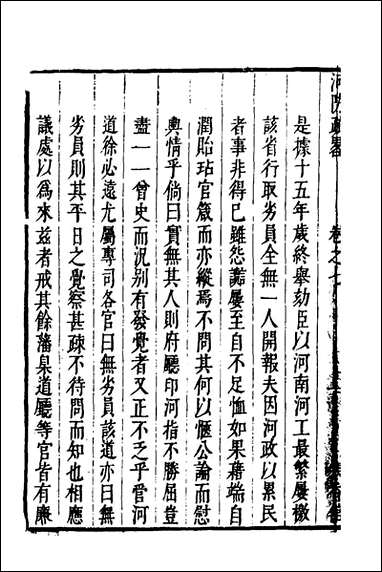 河防疏畧　卷之七
是據十五年歲終舉劾臣以河南河工最繁屢檄
該省行取劣員全無一人開報夫因河政以累民
者事非得已雖怨讟屢至自不足恤如果藉端自
潤貽玷官箴而亦縱焉不問其何以愜公論而慰
輿情乎倘曰實無其人則府廳印河指不勝屈豈
盡一一曾史而況别有發覺者又正不乏乎管河
道徐必遠尤屬專司各官曰無劣員該道亦曰無
劣員則其平日之覺察甚疎不待問而知也相應
議處以爲來兹者戒其餘藩臬道廳等官皆有廉